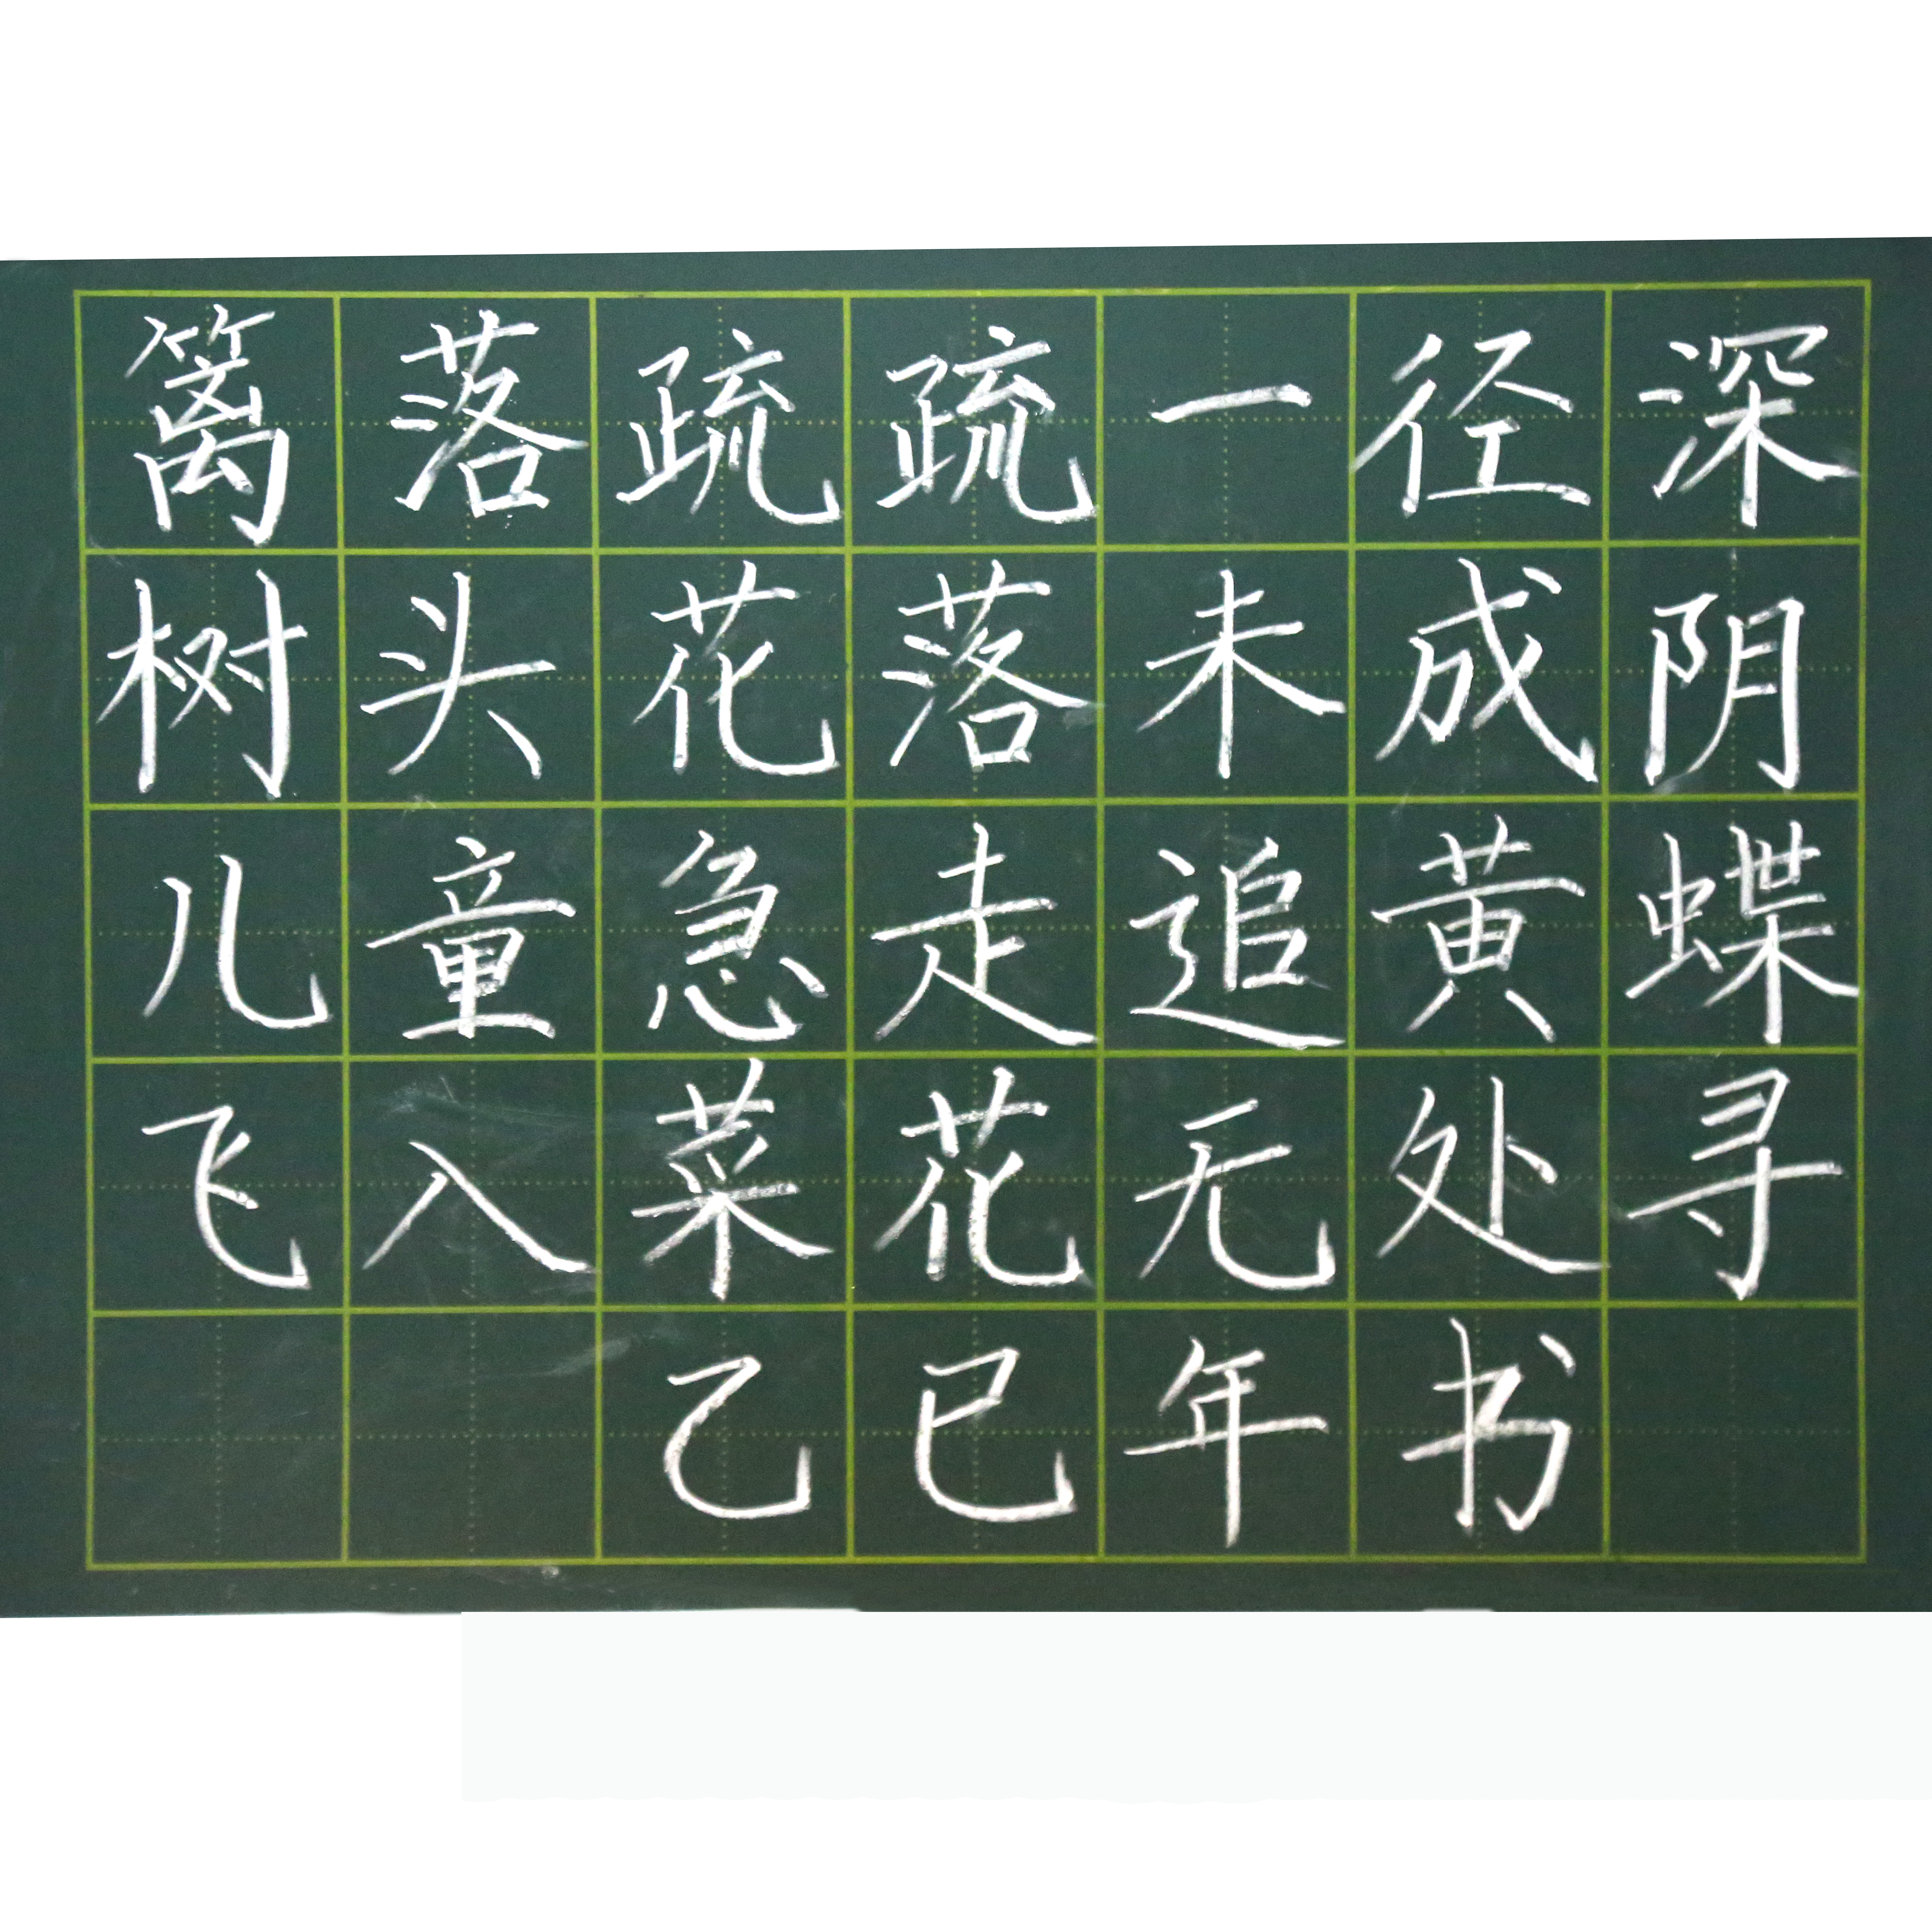 篱落疏疏一径深
树头花落未成阴
儿童急走追黄蝶
飞入菜花无处寻
乙巳年书